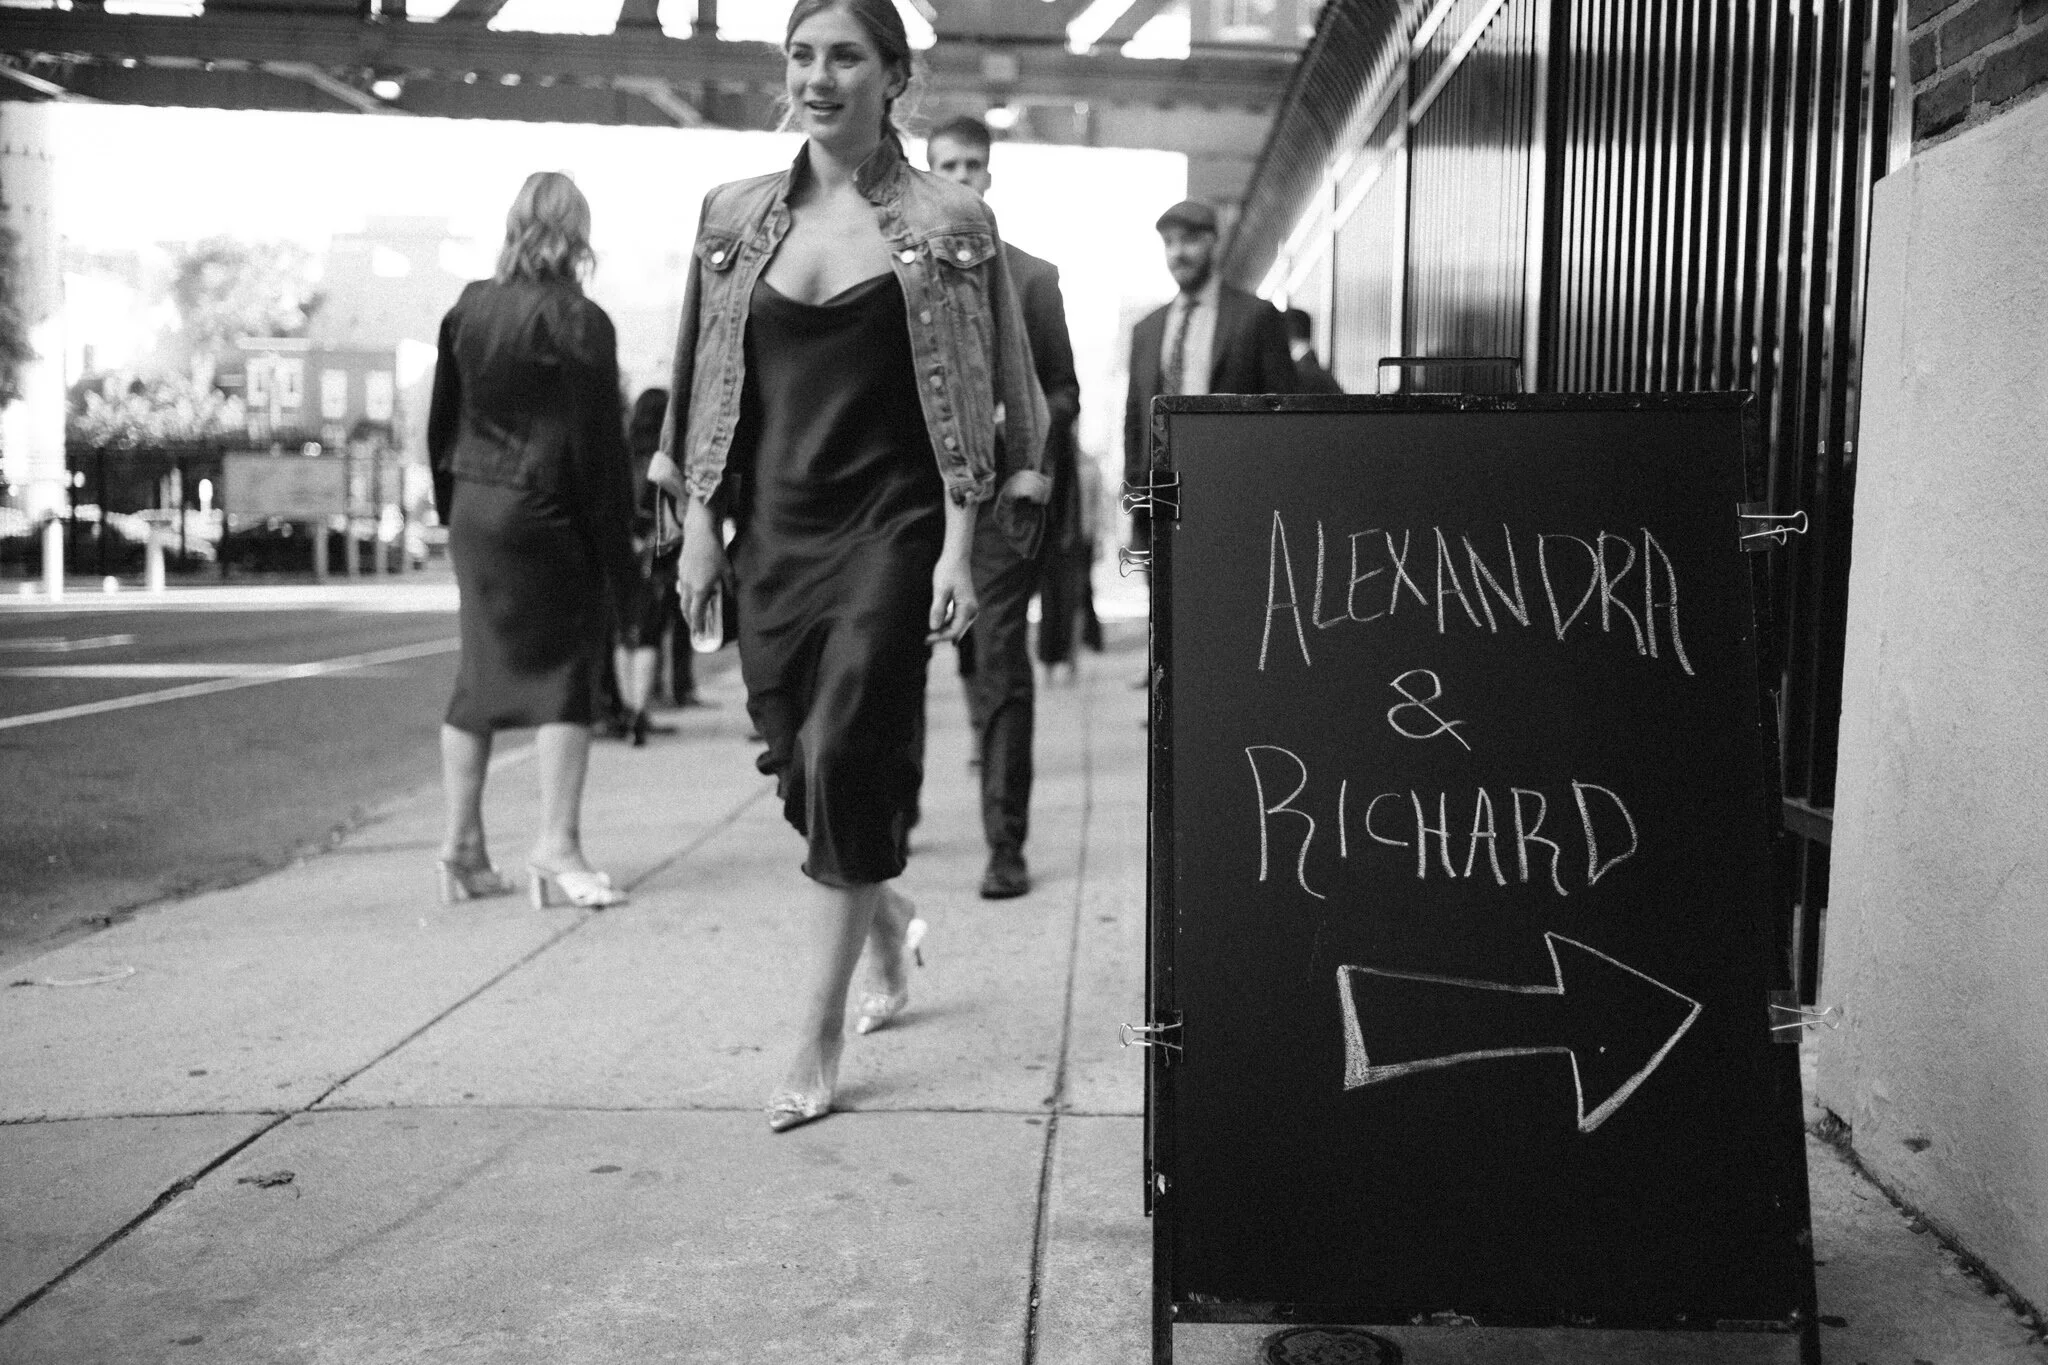 ALEXANDRA
&
RICHARD